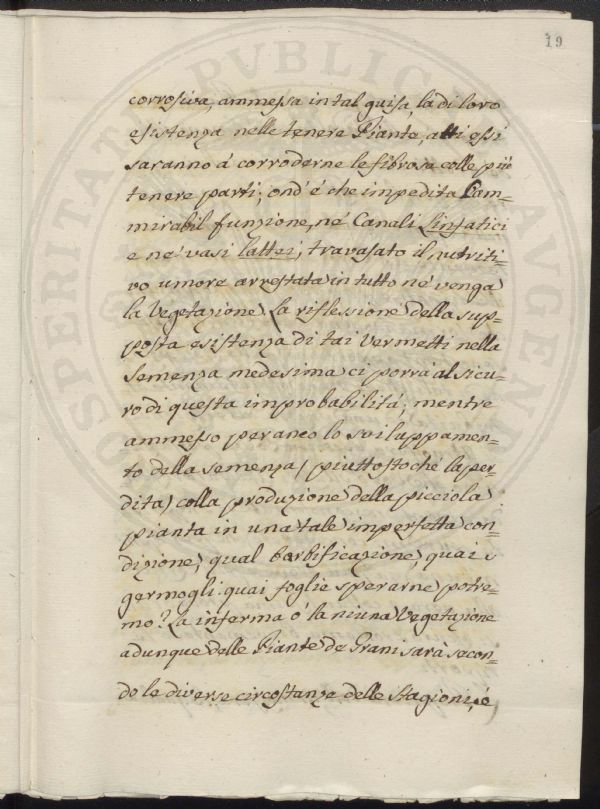 19
corrosiva, ammessa in tal guisa, la di loro
esistenza nelle tenere Piante, atti essi
saranno á corroderne le fibrose colle più
tenere parti; ond' é che impedita l'am=
mirabil funzione, né Canali linfatici
e né vasi lattei, travasato il nutriti=
vo umore arrestata in tutto né venga
la Vegetazione. La riflessione della sup=
posta esistenza di tai Vermetti nella
Semenza medesima ci porrà al sicu=
ro di questa improbabilitá; mentre
ammesso per anco lo sviluppamen=
to della semenza (piuttostoché la per=
dita) colla produzione della picciola
pianta in una tale imperfetta con=
dizione, qual barbificazione, quai
germogli: quai foglie sperarne potre=
mo? La inferma ó la niuna Vegetazione
adunque delle Piante de Grani sarà secon=
do le diverse circostanze delle Stagioni, ó
PROSPERITATI PUBLICAE AUGENDAE